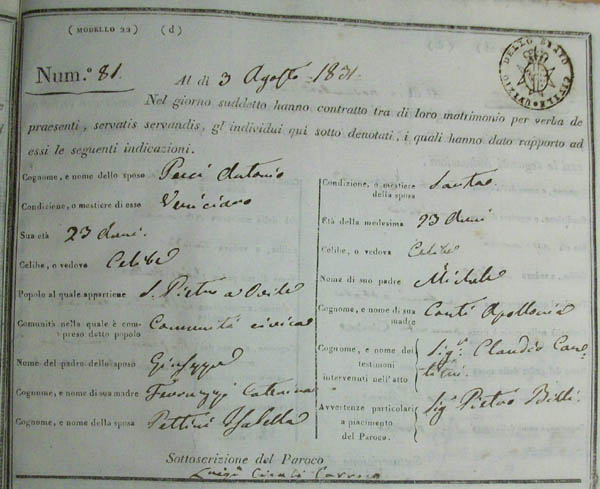 ( MODELLO 22 ) (d)
UFIZIO DELLO STATO CIVILE
Num.° 81. Al dì 3 Agosto 1831.
Nel giorno suddetto hanno contratto tra di loro matrimonio per verba de
praesenti, servatis servandis, gl'individui qui sotto denotati, i quali hanno dato rapporto ad
essi le seguenti indicazioni.
Cognome, e nome dello sposo Pucci Antonio
Condizione, o mestiere di esso Verniciaro
Sua età 23 Anni.
Celibe, o vedovo Celibe
Popolo al quale appartiene S. Pietro a Ovile
Comunità nella quale è com-
preso detto popolo Comunità civica
Nome del padre dello sposo Giuseppe
Cognome, e nome di sua madre Caterina
Cognome, e nome della sposa Pettini Isabella
Condizione, o mestiere
della sposa
Età della medesima 23 Anni
Celibe, o vedova Celibe
Nome di suo padre Michele
Cognome, e nome di sua
madre Conti Apollonia
Cognome, e nome dei
testimoni
intervenuti nell'atto
Sig. Claudio
Sig. Pietro Billi.
Avvertenze particolari
a piacimento
del Paroco.
Sottoscrizione del Paroco
Luigi